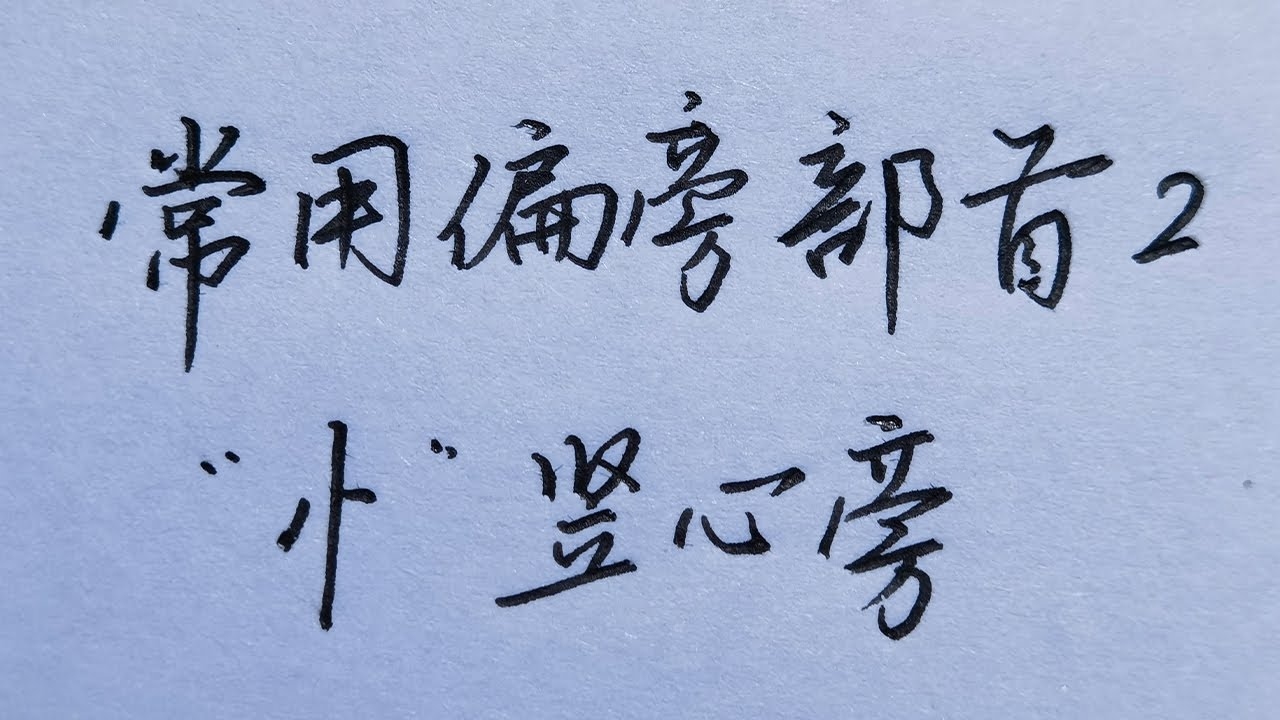 常用偏旁部首2
“忄”竖心旁